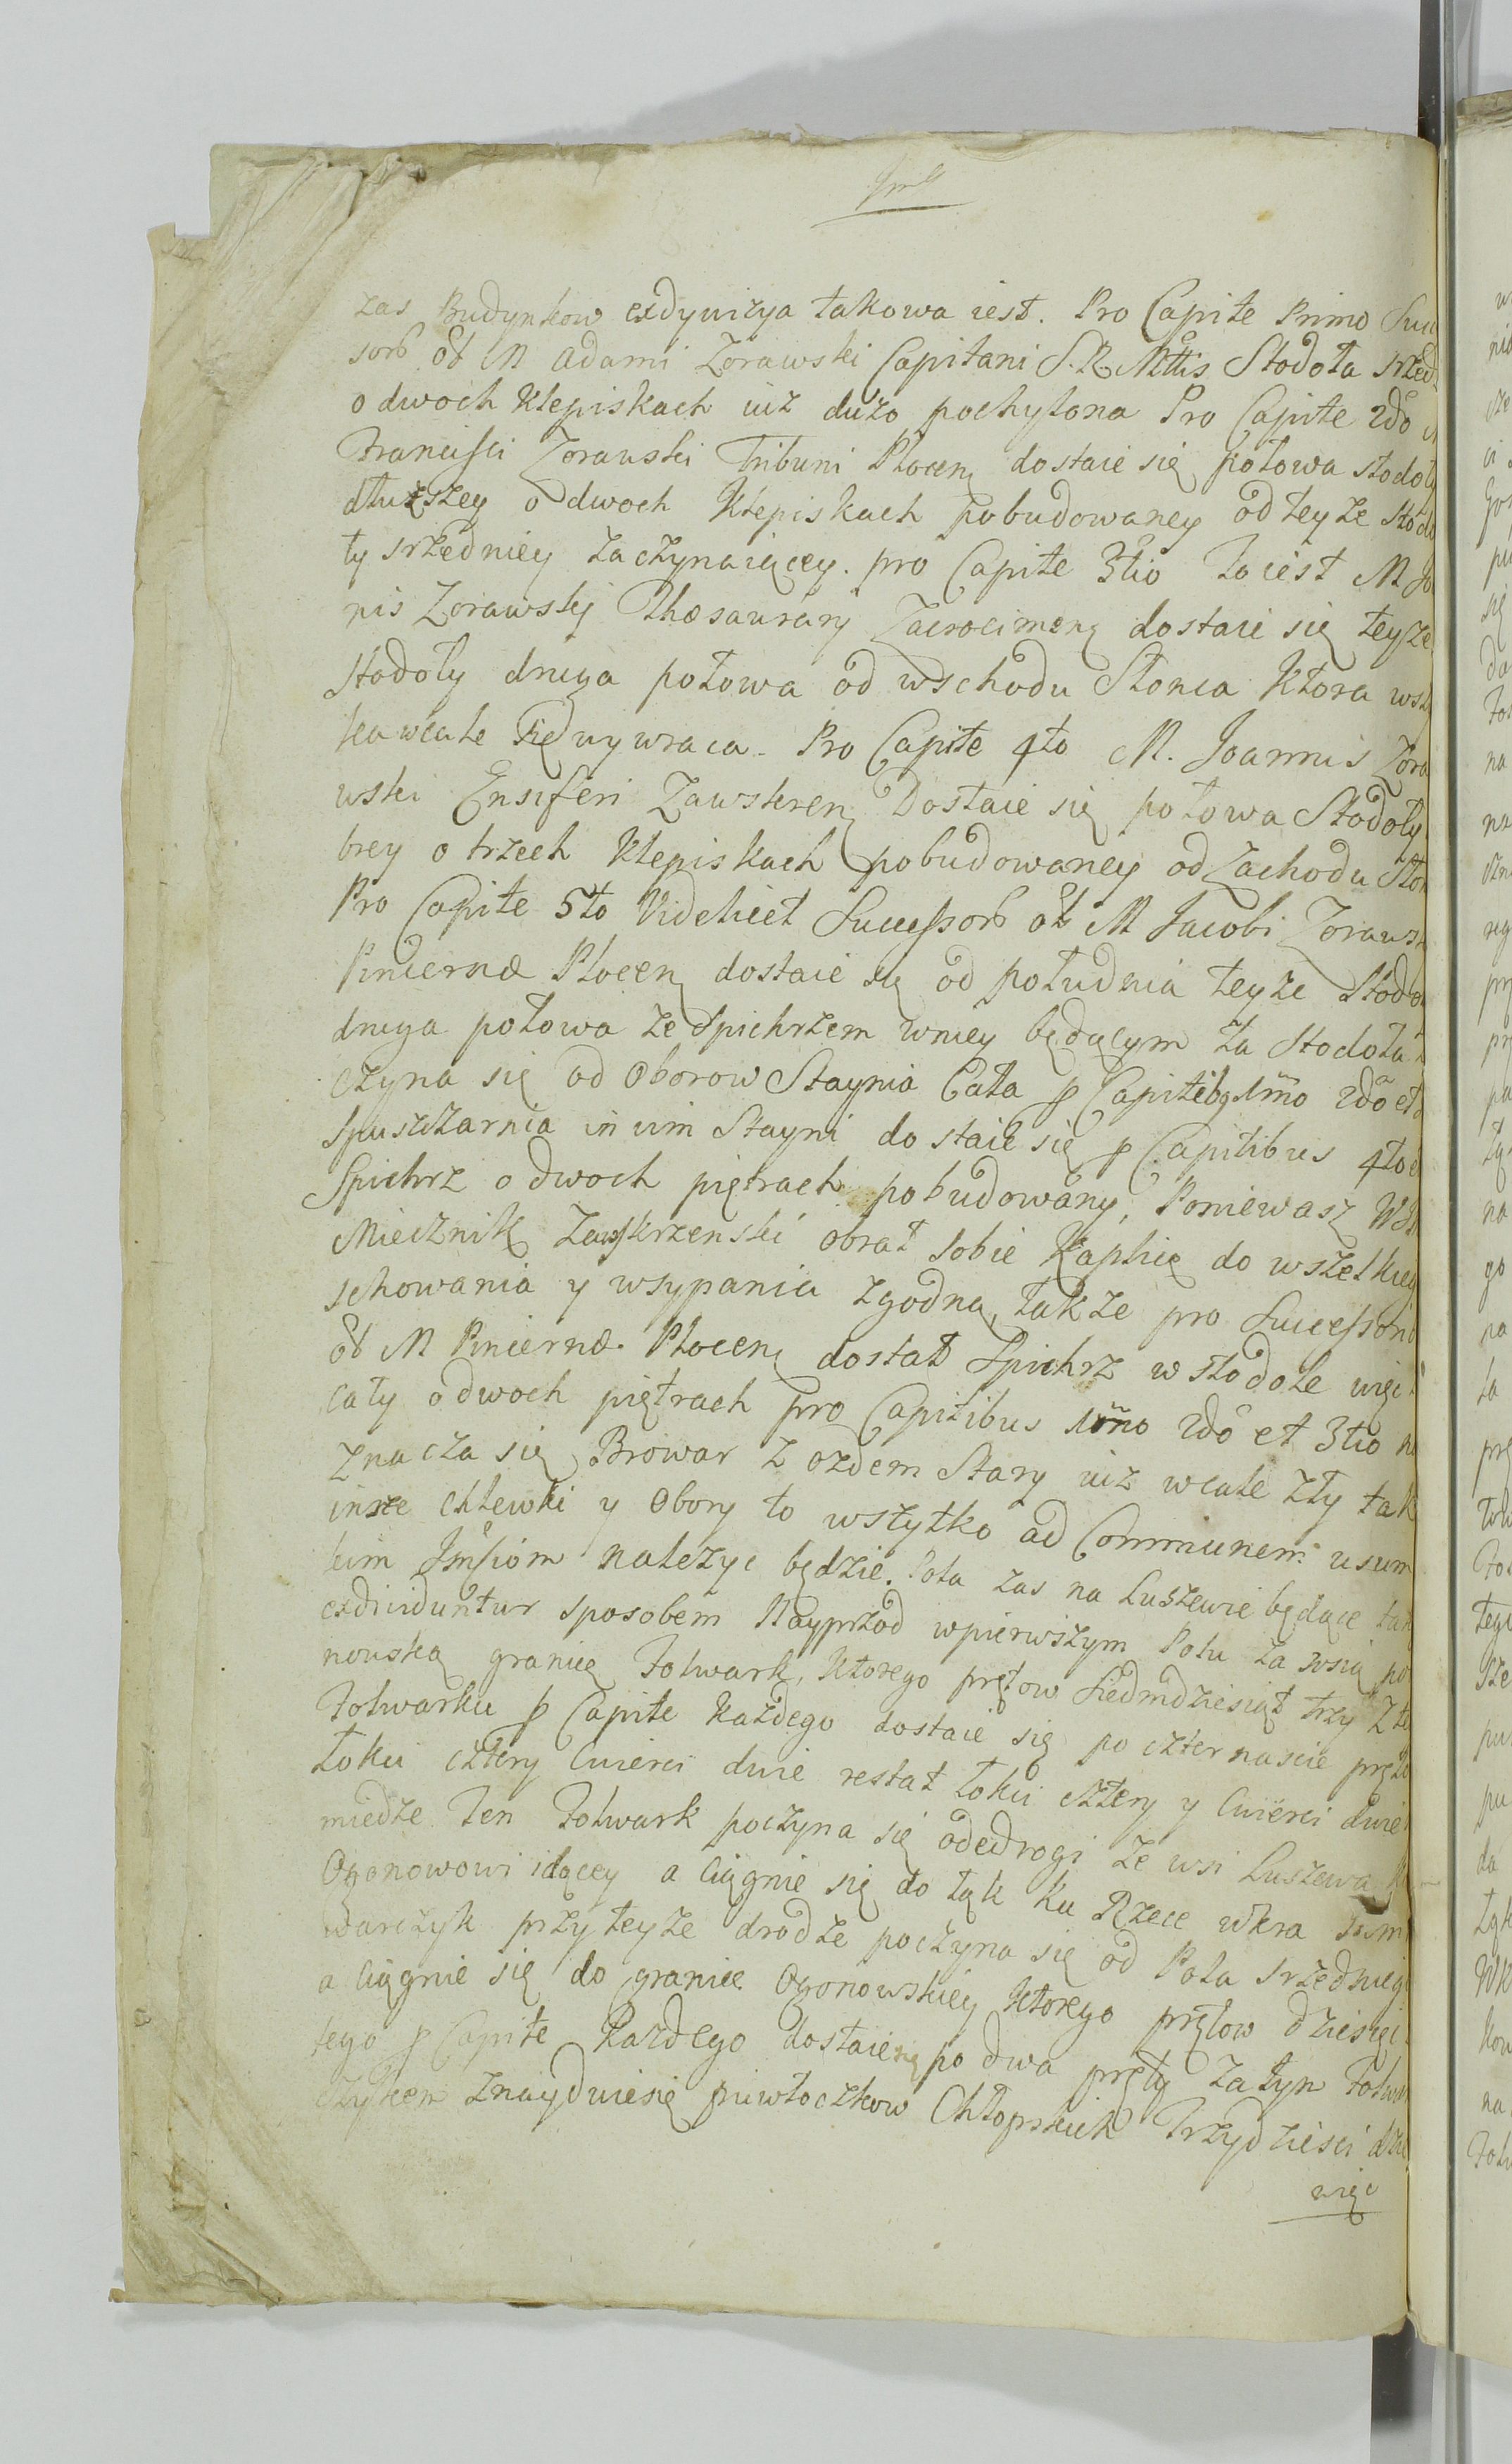 zas Budynkow exdywizya takowa iest. Pro Capite Primo Suc
sorō ol M Adami Zorawski Capitani S. R. Mttis Stodoła srzed
o dwoch klepiskach iuz duzo pochylona Pro Capite 2do
Francisci Zorawski Tribuni Plocen dostaie się połowa stodoły
dłuzszey o dwoch klepiskach pobudowaney od teyze stodo
ły srzedniey zaczynaiącey. pro Capite 3tio to iest M Jo
nis Zorawskj Thesaurarj Zacrocimen dostaie się teyze
Stodoły druga połowa od wschodu Słonca ktora wsz
ka wcale się wywraca. Pro Capite 4to M. Joannis Zora
wski Ensiferi Zawskren Dostaie się połowa Stodoły
brey o trzech klepiskach pobudowaney od Zachodu Sło
Pro Capite 5to Videlicet Successorō ol M Jacobi Zoraws
Pincernæ Plocen dostaie się od południa teyze Stodo
druga połowa ze Spichrzem wniey będącym ta stodoła
czyna się od Oborow Staynia Cała p Capitibq 1mo 2do et
Spuszczarnia in vim Stayni dostaie się p Capitibus 4to
Spichrz o dwoch piętrach pobudowany, Poniewasz
Miecznik Zawskrzenski obrał sobie Kaplię do wszelkieg
schowania y wsypania zgodną, takze pro Successori
ol M Pincernæ Plocen dostał Spichrz w stodole więc
cały o dwoch piętrach pro Capitibus 1mo 2do et 3tio
znacza się Browar z ozdem Stary iuz wcale zły tak
insze chlewki y Obory to wszytko ad Communem usum
kim Jmsiom nalezyc będzie. Pola zas na Luszewie będące tak
exdividuntur sposobem Nayprzod wpierwszym Polu za wsią po
nouską granię Folwark, ktorego prętow siedmdziesiąt trzy Z te
Folwarku p Capite kazdego dostaie się po czternascie pręto
łoku cztery cwierci dwie restat łoku cztery y cwierci dwie
miedze ten Folwark poczyna się odedrogi ze wsi Luszewa
Ogonowowi idącey a ciągnie się do łąk ku Rzece wkra
warczyk przy teyze drodze poczyna się od Pola srzednieg
a ciągnie się do granice Ogonowskiey ktorego prętow dziesięc
tego p Capite kazdego dostaie się po dwa pręty za tym Folwar
czykem znayduiesię puwłoczkow Chłopskich Trzydziesci dzie
więc